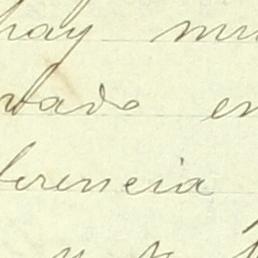 hay mu
vado en
ferencia
y